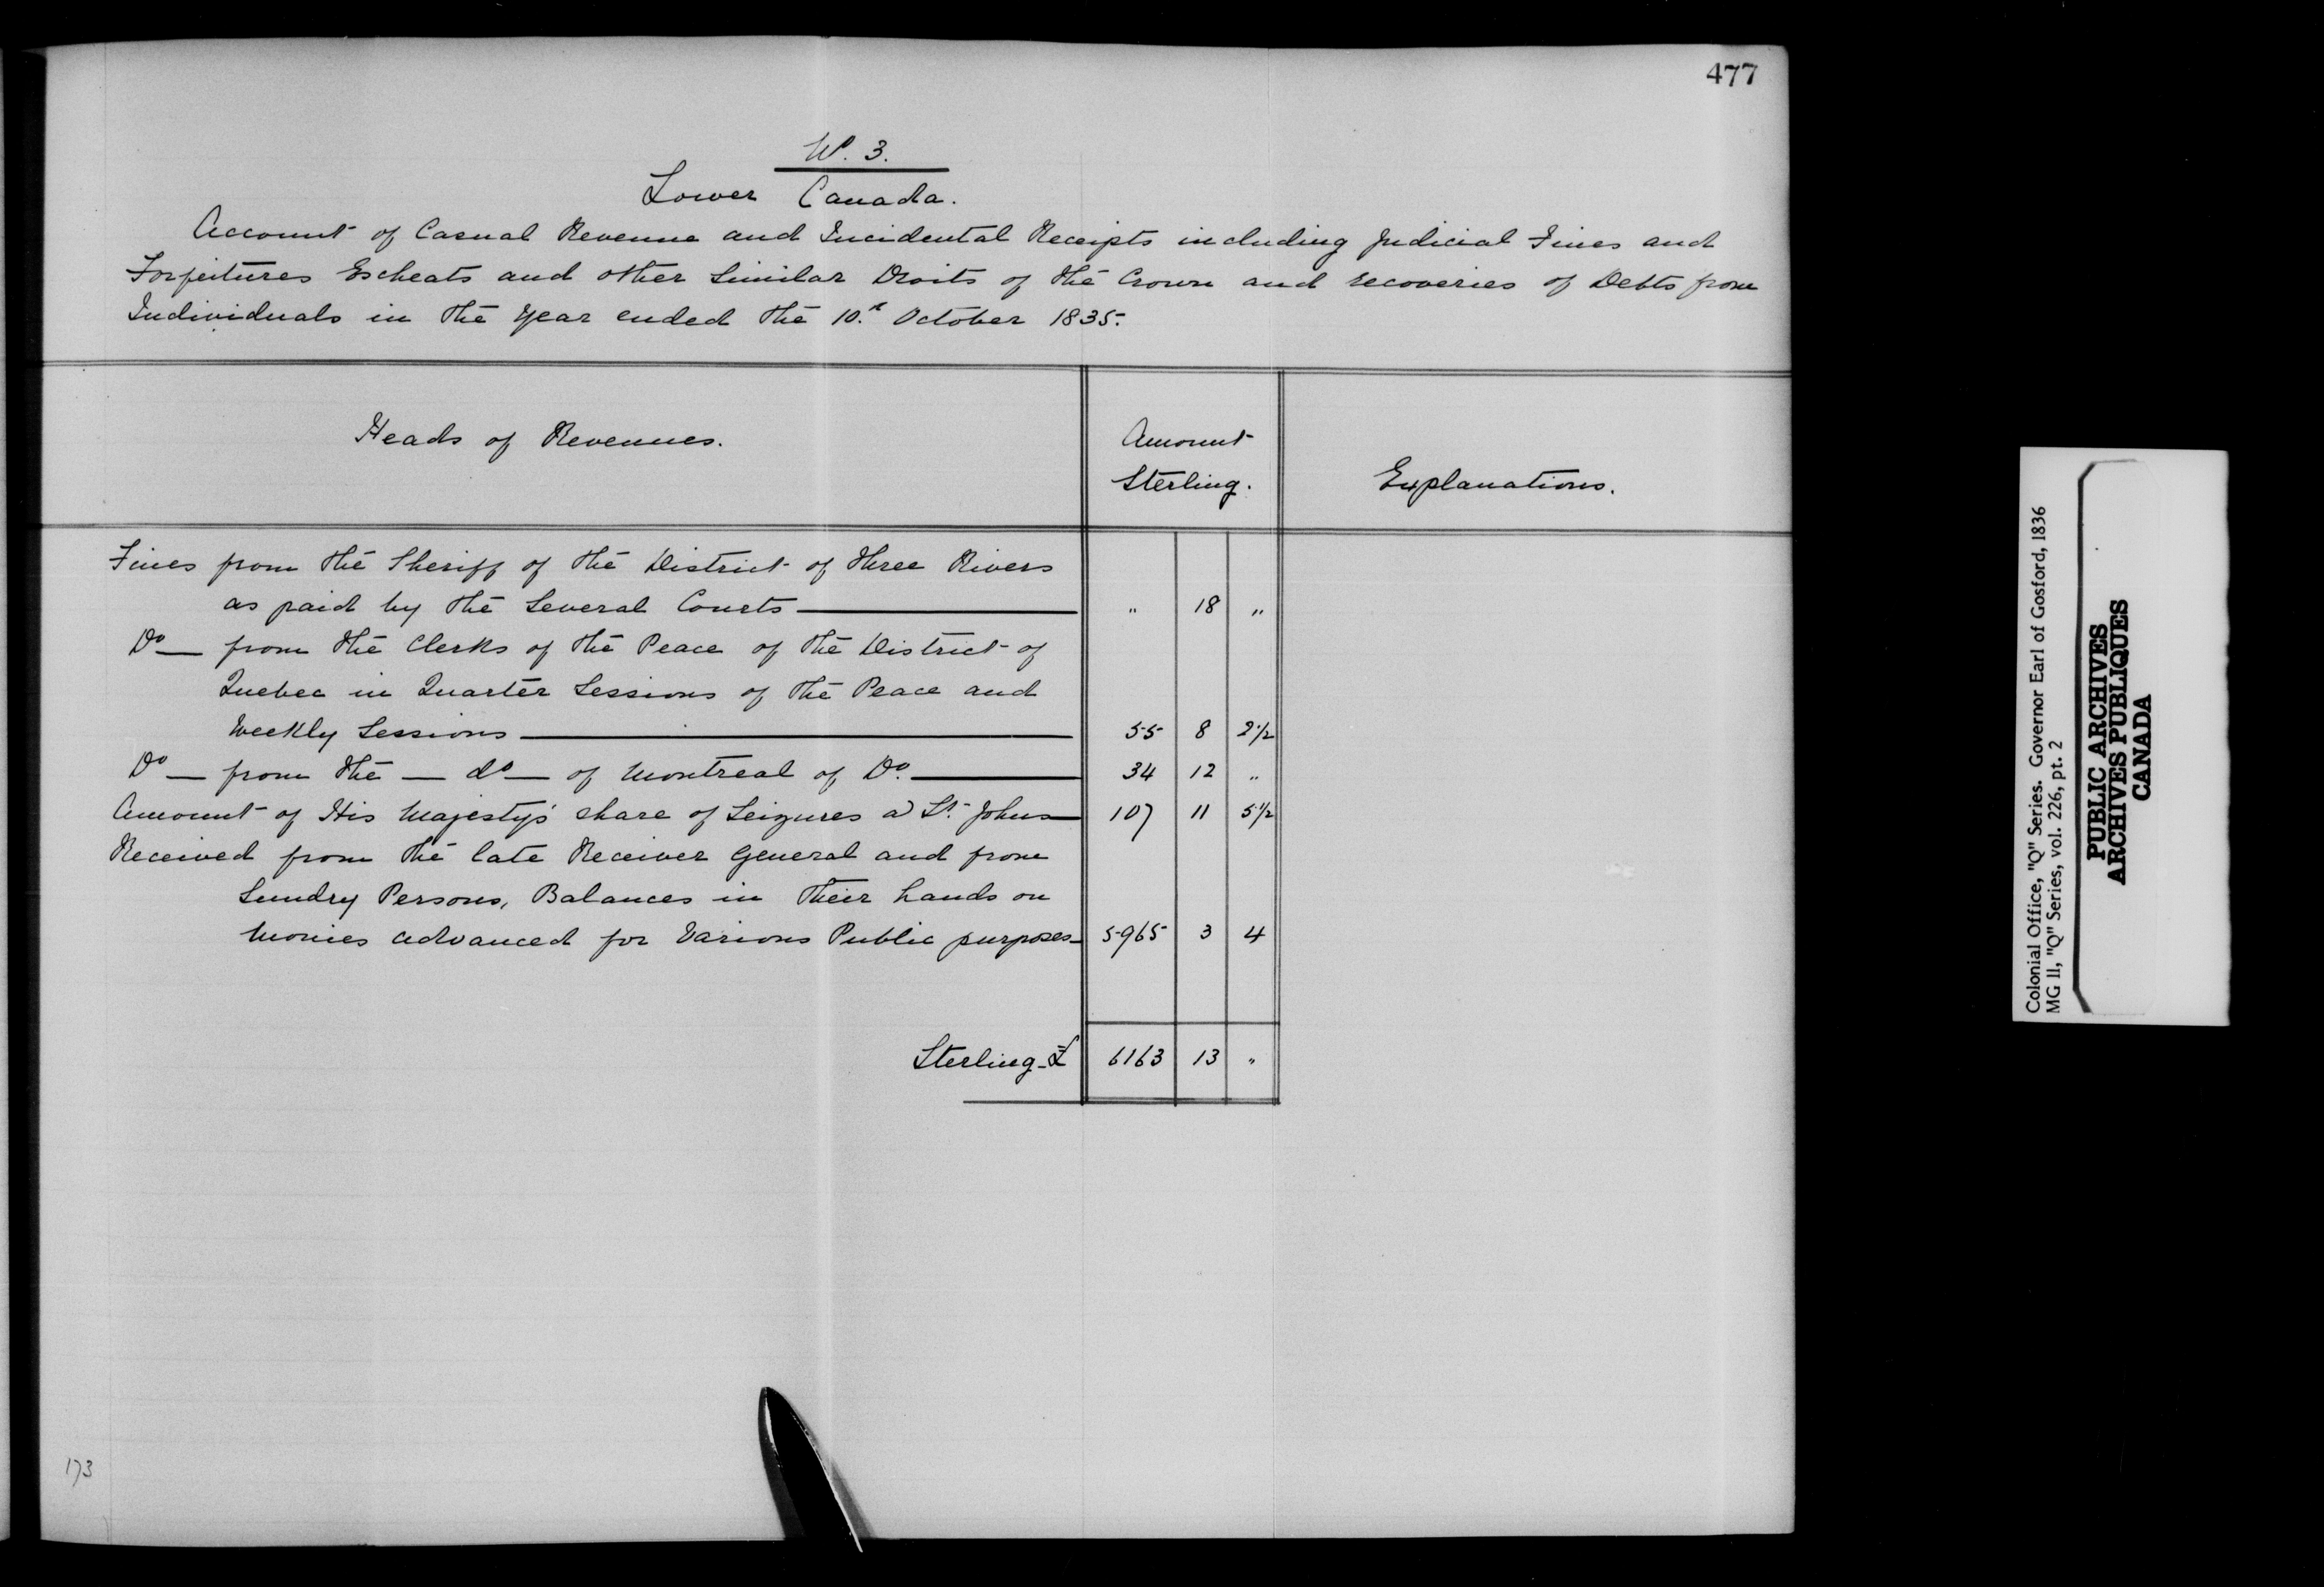 477
W. 3.
Lower Canada.
Account of Casual Revenue and Incidental Receipts including Judicial Fines and
Forfeitures Escheats and other Similar Droits of the Crown and recoveries of Debts from
Individuals in the Year ended the 10.th October 1835.
Heads of Revenues.
Amount
Sterling.
Explanations.
Fines from the Sheriff of the District of Three Rivers
as paid by the Several Courts — " 18 "
Do — from the Clerks of the Peace of the District of
Quebec in Quarter Sessions of the Peace and
Weekly Sessions — 55 8 2 1/2
Do — from the — do — of Montreal of Do. — 34 12 "
Amount of His Majesty's share of Seizures a St. Johns — 107 11 5 1/2
Received from the late Receiver General and from
Sundry Persons, Balances in their hands on
Monies advanced for Various Public purposes — 5965 3 4
Sterling - £ 6163 13 "
173
Colonial Office, "Q" Series. Governor Earl of Gosford, 1836
MG 11, "Q" Series, vol. 226, pt. 2
PUBLIC ARCHIVES
ARCHIVES PUBLIQUES
CANADA